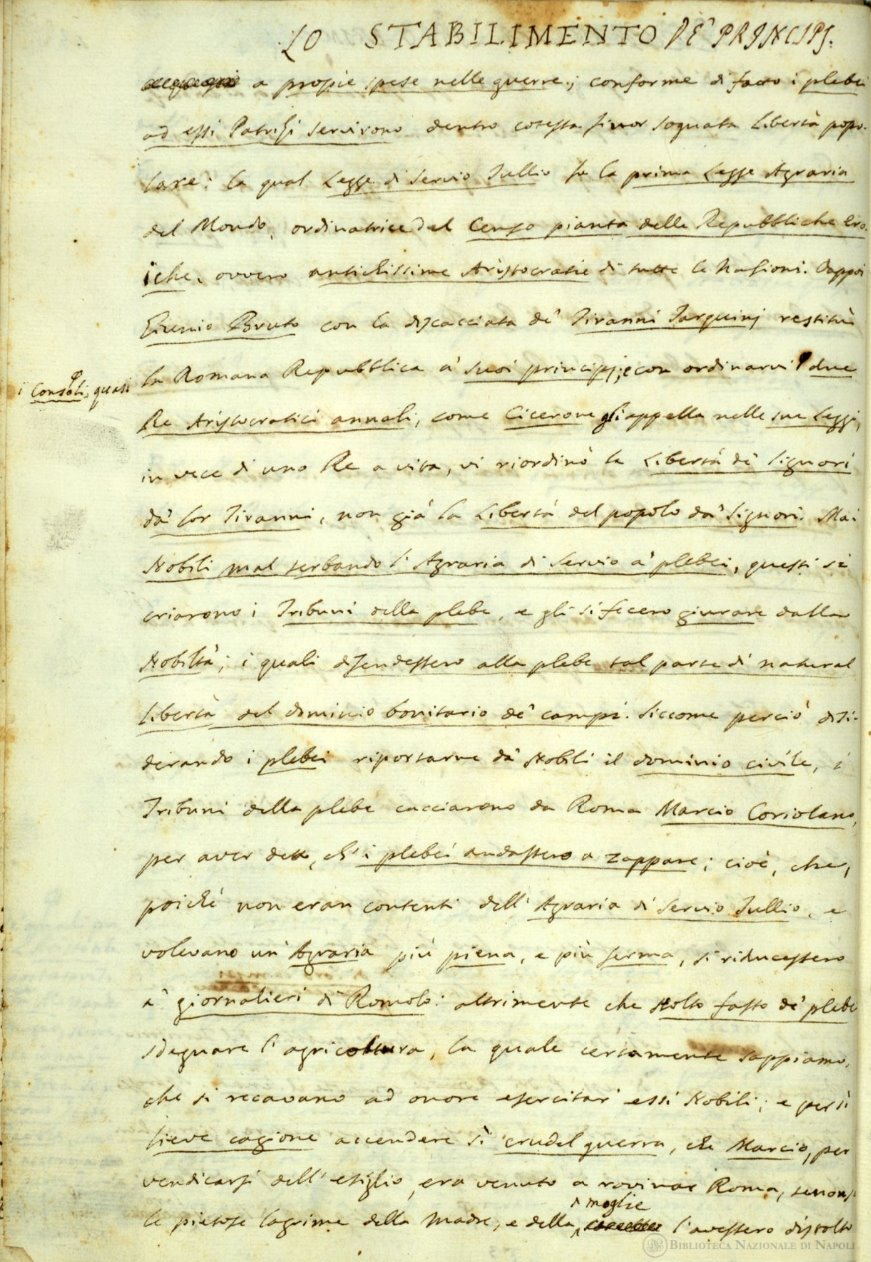 LO STABILIMENTO DE' PRINCIPJ.
a propie spese nelle guerre; conforme di fatto i plebei
ad essi Patrizj servirono dentro cotesta finor sognata Libertà popo-
lare: la qual Legge di Servio Tullio fu la prima Legge Agraria
del Mondo, ordinatrice del Censo pianta delle Repubbliche Ero-
iche, ovvero antichissime Aristocratie di tutte le Nazioni. Dappoi
Giunio Bruto con la discacciata de' Tiranni Tarquinj restituì
la Romana Repubblica a' suoi principj; e con ordinarvi due
i Consoli, quasi
Re Aristocratici annali, come Cicerone gli appella nelle sue Leggi,
in vece di uno Re a vita, vi riordinò la Libertà de' Signori
da' lor Tiranni, non già la Libertà del popolo da' Signori. Ma i
Nobili mal serbando l'Agraria di Servio a' plebei, questi si
criarono i Tribuni della plebe, e gli si fecero giurare dalla
Nobiltà; i quali difendessero alla plebe tal parte di natural
Libertà del dominio bonitario de' campi. Siccome perciò disi-
derando i plebei riportarne da' Nobili il dominio civile, i
Tribuni della plebe cacciarono da Roma Marcio Coriolano,
per aver detto, ch'i plebei andassero a zappare; cioè, che,
poichè non eran contenti dell'Agraria di Servio Tullio, e
volevano un'Agraria più piena, e più ferma, si riducessero
a' giornalieri di Romolo: altrimente che stolto fasto de' plebei
sdegnare l'agricoltura, la quale certamente sappiamo,
che si recavano ad onore esercitar essi Nobili; e per sì
lieve cagione accendere sì crudel guerra, che Marcio, per
vendicarsi dell'esiglio, era venuto a rovinar Roma, senonsè
le pietose lagrime della Madre, e della moglie l'avessero distolto
BIBLIOTECA NAZIONALE DI NAPOLI